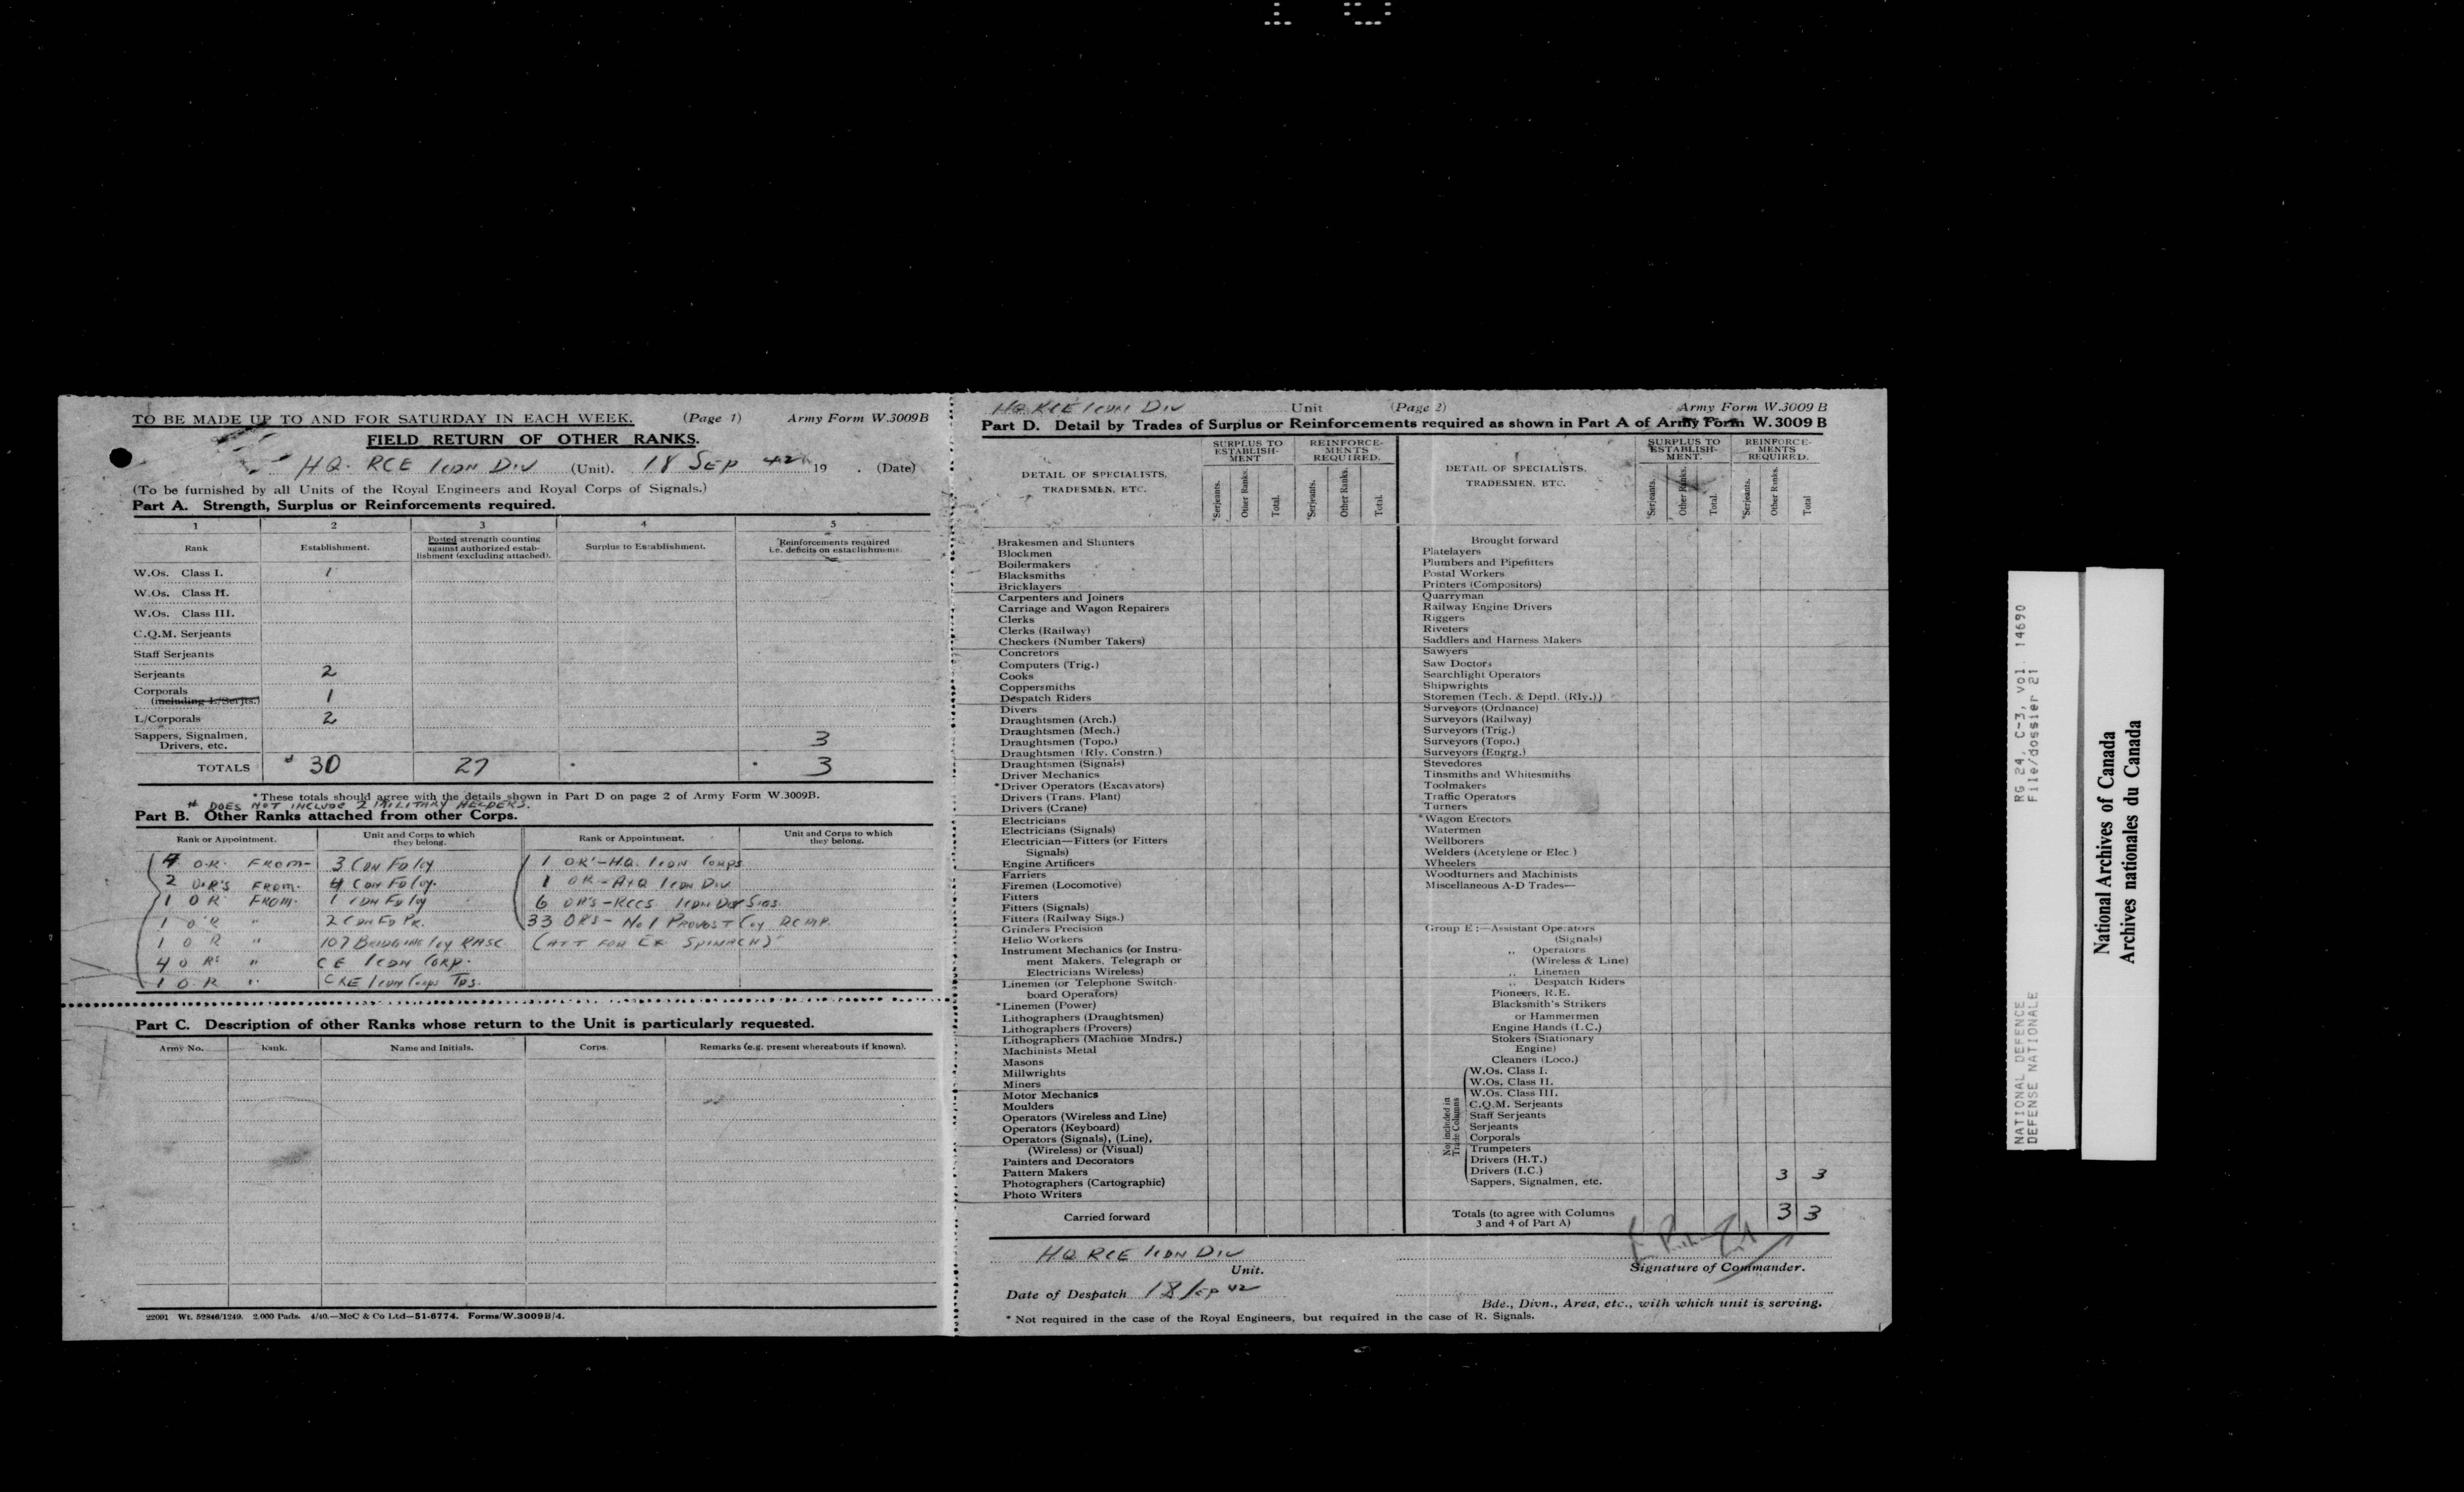 TO BE MADE UP TO AND FOR SATURDAY IN EACH WEEK. (Page 1) Army Form W.3009B
FIELD RETURN OF OTHER RANKS.
HQ. RCE 1 CDN DIV (Unit). 18 SEP 42 19 . (Date)
(To be furnished by all Units of the Royal Engineers and Royal Corps of Signals.)
Part A. Strength, Surplus or Reinforcements required.
1 2 3 4 5
Rank Establishment. Posted strength counting against authorized establishment (excluding attached). Surplus to Establishment. *Reinforcements required i.e. deficits on establishments.
W.Os. Class I. 1
W.Os. Class II.
W.Os. Class III.
C.Q.M. Serjeants
Staff Serjeants
Serjeants 2
Corporals (including L/Serjts.) 1
L/Corporals 2
Sappers, Signalmen, Drivers, etc. 3
TOTALS 30 27 3
*These totals should agree with the details shown in Part D on page 2 of Army Form W.3009B.
# DOES NOT INCLUDE 2 MILITARY HELPERS.
Part B. Other Ranks attached from other Corps.
Rank or Appointment. Unit and Corps to which they belong. Rank or Appointment. Unit and Corps to which they belong.
4 O.R. FROM- 3 CDN FD Coy 1 OR'-HQ. 1 CDN Corps
2 O.R'S FROM- 4 CDN FD Coy. 1 OR-A+Q 1 CDN DIV
1 O R FROM- 1 CDN FD Coy 6 OR'S-RCCS 1 CDN DIV SIGS.
1 O R " 2 CDN FD PK. 33 ORS- No 1 PROVOST Coy RCMP.
1 O R " 107 BRIDGING Coy RASC (ATT FOR EX SPINACH)
4 O Rs " CE 1 CDN CORP.
1 O.R. " CRE 1 CDN Corps TPS.
Part C. Description of other Ranks whose return to the Unit is particularly requested.
Army No. Rank. Name and Initials. Corps. Remarks (e.g. present whereabouts if known).
22091 Wt. 52846/1249. 2,000 Pads. 4/40.—McC & Co Ltd—51-6774. Forms/W.3009B/4.
HQ RCE 1 CDN DIV Unit (Page 2) Army Form W.3009 B
Part D. Detail by Trades of Surplus or Reinforcements required as shown in Part A of Army Form W.3009 B
DETAIL OF SPECIALISTS, TRADESMEN, ETC.
SURPLUS TO ESTABLISHMENT
REINFORCEMENTS REQUIRED.
*Serjeants. Other Ranks. Total. *Serjeants. Other Ranks. Total.
Brakesmen and Shunters
Blockmen
Boilermakers
Blacksmiths
Bricklayers
Carpenters and Joiners
Carriage and Wagon Repairers
Clerks
Clerks (Railway)
Checkers (Number Takers)
Concretors
Computers (Trig.)
Cooks
Coppersmiths
Despatch Riders
Divers
Draughtsmen (Arch.)
Draughtsmen (Mech.)
Draughtsmen (Topo.)
Draughtsmen (Rly. Constrn.)
Draughtsmen (Signals)
Driver Mechanics
*Driver Operators (Excavators)
Drivers (Trans. Plant)
Drivers (Crane)
Electricians
Electricians (Signals)
Electrician—Fitters (or Fitters
Signals)
Engine Artificers
Farriers
Firemen (Locomotive)
Fitters
Fitters (Signals)
Fitters (Railway Sigs.)
Grinders Precision
Helio Workers
Instrument Mechanics (or Instru-
ment Makers, Telegraph or
Electricians Wireless)
Linemen (or Telephone Switch-
board Operators)
*Linemen (Power)
Lithographers (Draughtsmen)
Lithographers (Provers)
Lithographers (Machine Mndrs.)
Machinists Metal
Masons
Millwrights
Miners
Motor Mechanics
Moulders
Operators (Wireless and Line)
Operators (Keyboard)
Operators (Signals), (Line),
(Wireless) or (Visual)
Painters and Decorators
Pattern Makers
Photographers (Cartographic)
Photo Writers
Carried forward
DETAIL OF SPECIALISTS, TRADESMEN, ETC.
SURPLUS TO ESTABLISHMENT.
REINFORCEMENTS REQUIRED.
*Serjeants. Other Ranks. Total. *Serjeants. Other Ranks. Total
Brought forward
Platelayers
Plumbers and Pipefitters
Postal Workers
Printers (Compositors)
Quarryman
Railway Engine Drivers
Riggers
Riveters
Saddlers and Harness Makers
Sawyers
Saw Doctors
Searchlight Operators
Shipwrights
Storemen (Tech. & Deptl. (Rly.))
Surveyors (Ordnance)
Surveyors (Railway)
Surveyors (Trig.)
Surveyors (Topo.)
Surveyors (Engrg.)
Stevedores
Tinsmiths and Whitesmiths
Toolmakers
Traffic Operators
Turners
*Wagon Erectors
Watermen
Wellborers
Welders (Acetylene or Elec.)
Wheelers
Woodturners and Machinists
Miscellaneous A-D Trades—
Group E :—Assistant Operators
(Signals)
,, Operators
(Wireless & Line)
,, Linemen
,, Despatch Riders
Pioneers, R.E.
Blacksmith's Strikers
or Hammermen
Engine Hands (I.C.)
Stokers (Stationary
Engine)
Cleaners (Loco.)
Not included in Trade Columns
W.Os. Class I.
W.Os. Class II.
W.Os. Class III.
C.Q.M. Serjeants
Staff Serjeants
Serjeants
Corporals
Trumpeters
Drivers (H.T.)
Drivers (I.C.) 3 3
Sappers, Signalmen, etc.
Totals (to agree with Columns 3 and 4 of Part A) 3 3
HQ RCE 1 CDN DIV
Unit.
Signature of Commander.
Date of Despatch 18 Sep 42
Bde., Divn., Area, etc., with which unit is serving.
* Not required in the case of the Royal Engineers, but required in the case of R. Signals.
NATIONAL DEFENCE RG 24, C-3, vol. 14690
DEFENSE NATIONALE File/dossier 21
National Archives of Canada
Archives nationales du Canada